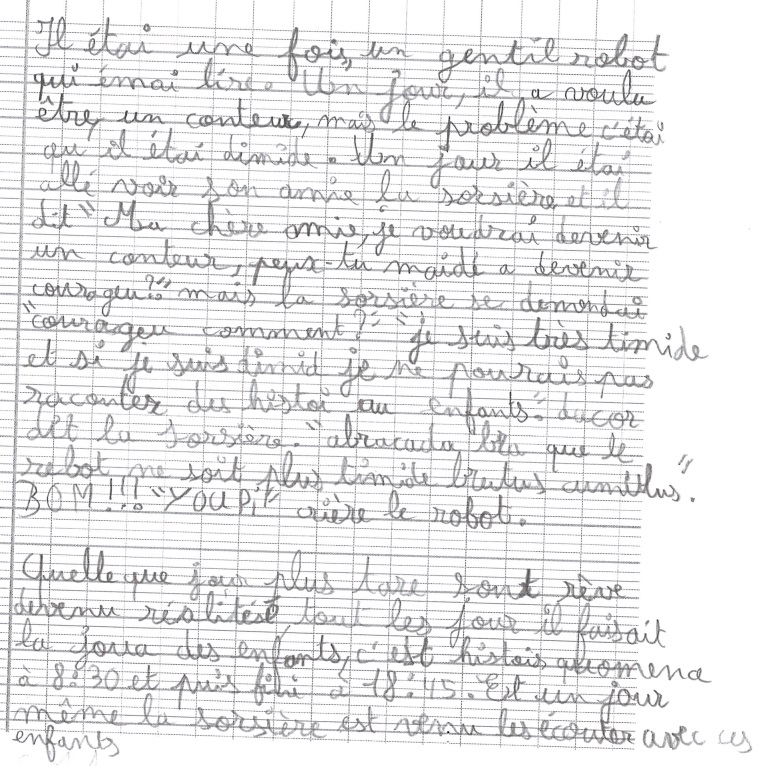 Il étai une fois, un gentil robot
qui émai lire. Un jour, il a voulu
être un conteur, mais le problème c'étai
qu'il étai dimide. Um jour il étai
allé voir son amie la sorsière et il
dit "Ma chère amie, je voudrai devenir
un conteur, peux-tu maidé a devenir
courageu?" mais la sorsière se demandai
"courageu comment?" "je suis très timide
et si je suis dimid je ne pourais pas
raconter des histoi au enfants." dacor
dit la sorsière. "abracadabra que le
robot ne soit plus timide brutus cumulus".
BOM!!! "YOUPi" crière le robot.
Quelle que jour plus tare sont rève
devenu réalités, tout les jour il faisait
la joua des enfants, c'est histois quomena
à 8:30 et puis fini à 18:45. Et un jour
même la sorsière est venu les écouter avec ces
enfants